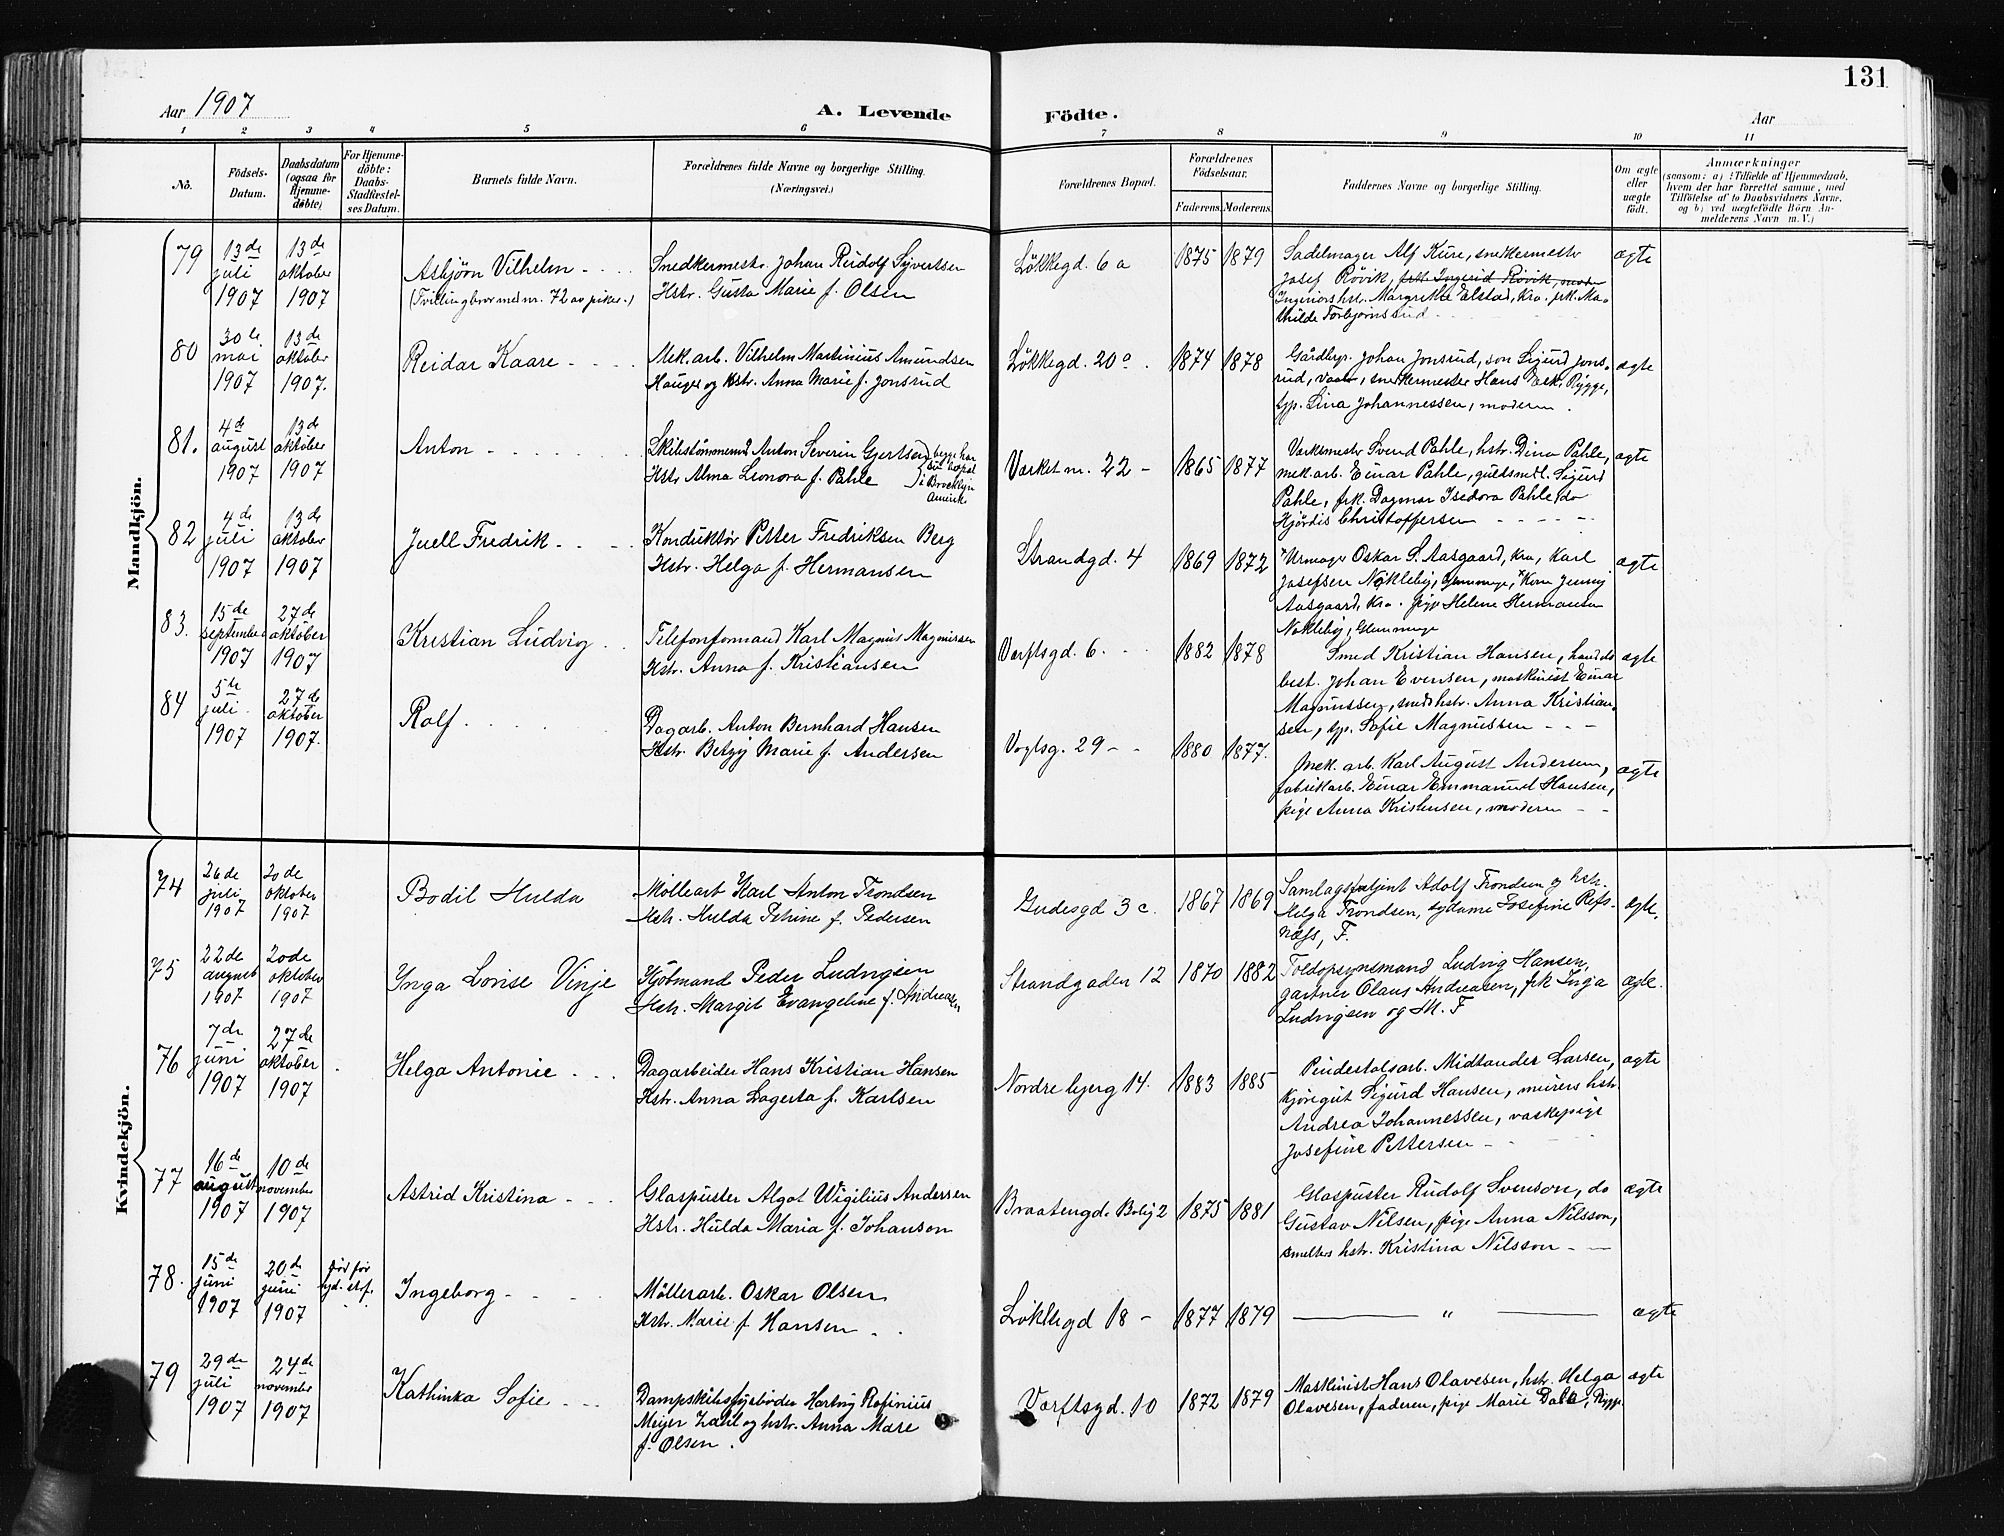 131
Aar 1907
A. Levende Födte.
Aar
1 2 3 4 5 6 7 8 9 10 11
No.
Födsels-Datum.
Daabsdatum (ogsaa for Hjemme-döbte)
For Hjemme-döbte: Daabs-Stadfæstel-ses Datum.
Barnets fulde Navn.
Forældrenes fulde Navne og borgerlige Stilling. (Næringsvei.)
Forældrenes Bopæl.
Forældrenes Födselsaar.
Faderens. Moderens.
Faddernes Navne og borgerlige Stilling.
Om ægte eller uægte födt.
Anmærkninger
(saasom: a) i Tilfælde af Hjemmedaab,
hvem der har forrettet samme, med
Tilföielse af to Daabsvidners Navne,
og b) ved uægtefödte Börn An-
melderens Navn m. V.)
Mandkjön.
79 13de juli 1907 13de oktober 1907
Asbjørn Vilhelm
(Tvillingbror med nr. 72 av piker.)
Snedkermestr. Johan Rudolf Syvertsen
Hstr. Gusta Marie f. Olsen
Løkkegd. 6a 1875 1879
Sadelmager Alf Kure, snedkermester
Josef Rövik, frk. Ingerid Rövik,
Ingeniørs hstr. Margrethe Elstad, Kra. frk. Ma-
thilde Torbjørnsrud
ægte
80 30te mai 1907 13de oktober 1907.
Reidar Kaare
Mek. arb. Vilhelm Martinius Amundsen
Hauger og hstr. Anna Marie f. Jonsrud
Løkkegd. 20a 1874 1878
Gårdbr. Johan Jonsrud, søn Sigurd Jons-
rud, Vaaler, snedkermester Hans Eek, Rygge,
syp. Lina Johannessen, moderen.
ægte
81. 4de august 1907 13de oktober 1907
Anton
Skibstømmermd Anton Severin Gjertsen
Hstr Alma Leonora f. Pahle
begge har
bopæl
i Brooklyn
Amerika
Værket nr. 22 1865 1877
Værksmestr Svend Pahle, hstr. Dina Pahle,
mek. arb. Einar Pahle, guldsml. Sigurd
Pahle, frk. Dagmar Isedora Pahle, do
Hjördis Christoffersen
ægte
82 4de juli 1907 13de oktober 1907
Juell Fredrik
Konduktør Petter Fredriksen Berg
Hstr. Helga f. Hermansen
Strandgd. 4 1869 1872
Urmager Oskar S. Aasgaard, Kra, Karl
Josefsen Nøkleby, Glemminge, Kone Jenny
Aasgaard, Kra. pige Helene Hermansen
Nøkleby, Glemminge
ægte
83. 15de september 1907 27de oktober 1907
Kristian Ludvig
Telefonformand Karl Magnus Magnussen
Hstr. Anna f. Kristiansen
Værftsgd. 6. 1882 1878
Smed Kristian Hansen, handels
best. Johan Evensen, maskinist Einar
Magnussen, smeds hstr. Anna Kristian-
sen, syp. Sofie Magnussen
ægte
84 5te juli 1907 27de oktober 1907.
Rolf
Dagarb. Anton Bernhard Hansen
Hstr. Betzy Marie f. Andersen
Vogtsg. 29 1880 1877.
Mek. arb. Karl August Andersen,
fabrikarb. Einar Emmanuel Hansen,
pige Anna Kristensen, moderen
ægte
Kvindekjön.
74 26de juli 1907 20de oktober 1907
Bodil Hulda
Møllearb Karl Anton Trondsen
Hstr. Hulda Petrine f. Pedersen
Gudesgd 3c. 1867 1869
Samlagsbetjent Adolf Trondsen og hstr.
Helga Trondsen, sydame Josefine Refs-
næss, F.
ægte.
75 22de august 1907 20de oktober 1907
Ynga Lovise Vinje
Kjøbmand Peder Ludvigsen
Hstr. Margit Evangeline f. Andreasen
Strandgaden 12 1870 1882
Toldopsynsmand Ludvig Hansen,
gartner Olaus Andreasen, frk Inga
Ludvigsen og M. F
ægte.
76 7de juni 1907 27de oktober 1907
Helga Antonie
Dagarbeider Hans Kristian Hansen
Hstr. Anna Lagerta f. Karlsen
Nordre bjerg 14. 1883 1885
Pindestolsarb. Midtander Larsen,
kjöregut Sigurd Hansen, murers hstr.
Andrea Johannessen, vaskepige
Josefine Pettersen
ægte
77 16de august 1907 10de november 1907
Astrid Kristina
Glaspuster Algot Wigilius Andersen
Hstr. Hulda Maria f. Johanson
Braatengd. Bolig 2 1875 1881
Glaspuster Rudolf Svenson, do
Gustav Nilsen, pige Anna Nilsson,
smelters hstr. Kristina Nilsson
ægte
78. 15de juni 1907 20de juni 1907
Ingeborg
Møllerarb. Oskar Olsen
Hstr. Marie f Hansen
Løkkegd 18 1877 1879
"
ægte
79 29de juli 1907 24de november 1907
Kathinka Sofie
Dampskibsfyrbøder Hartvig Rofinius
Meyer Zahl og hstr. Anna Marie
f. Olsen.
Værftsgd. 10 1872 1879
Maskinist Hans Olavesen, hstr. Helga
Olavesen, faderen, pige Marie Dahl, Rygge
ægte